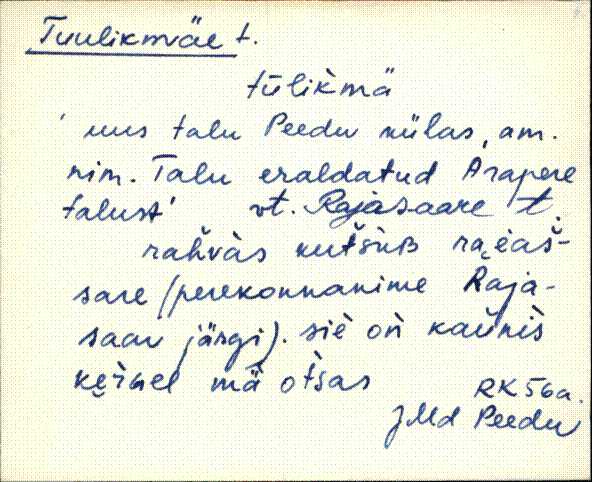 Tuulikmäe t.
tùliḱmä
'uus talu Peedu külas, am.
nim. Talu eraldatud Arapere
talust' vt. Rajasaare t.
rahvàs kutšùB
sare (perekonnanime Raja-
saar järgi). siè oǹ kaùnìs
mä otsas
RK 56a.
JMd Peedu